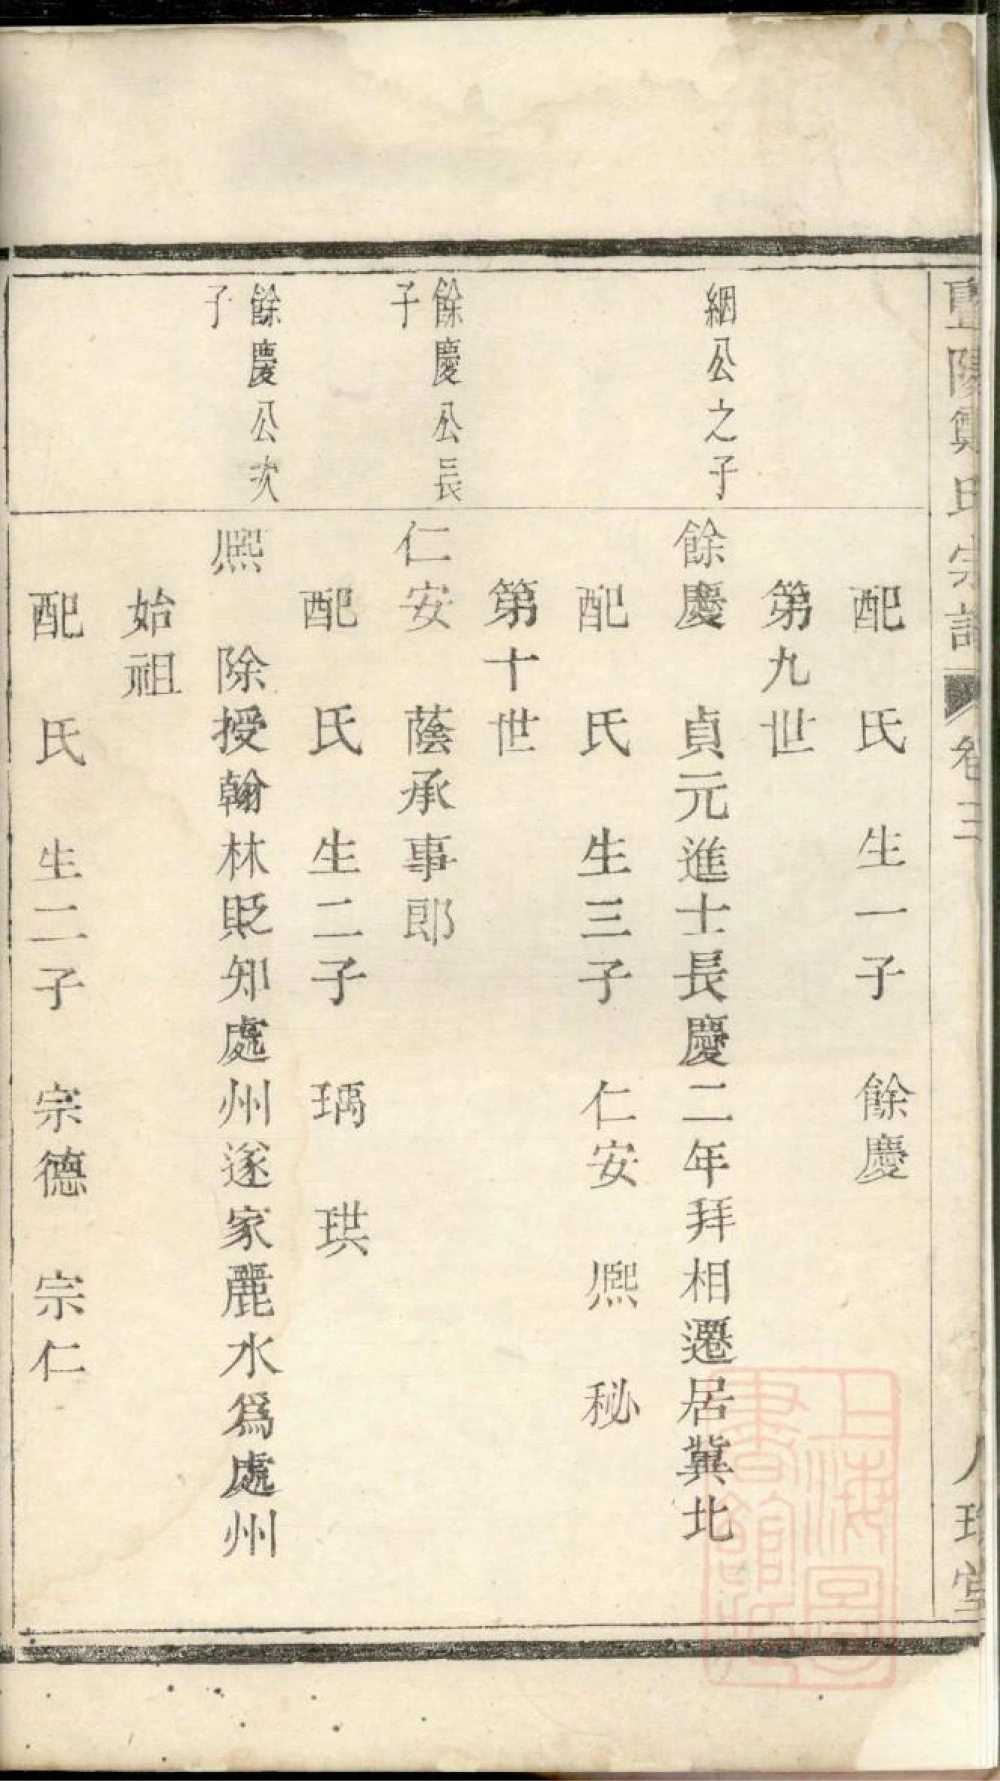 暨陽鄭氏宗譜 卷三
配 氏 生一子 餘慶
第九世
絪公之子
餘慶 貞元進士長慶二年拜相遷居冀北
配 氏 生三子 仁安 熈 秘
第十世
餘慶公長
子
仁安 蔭承事郎
配 氏 生二子 瑀 珙
餘慶公次
子
熈 除授翰林貶知處州遂家麗水爲處州
始祖
配 氏 生二子 宗德 宗仁
上海圖
書館藏